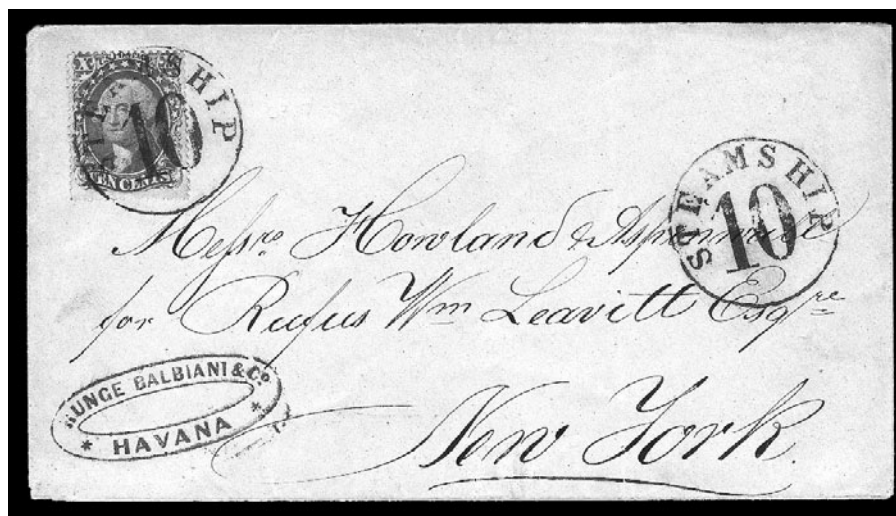 STEAMSHIP
10
TEN CENTS
STEAMSHIP
10
Messrs. Howland & Aspinwall
for Rufus Wm Leavitt Esqre
New York
BUNGE BALBIANI & Co
* HAVANA *